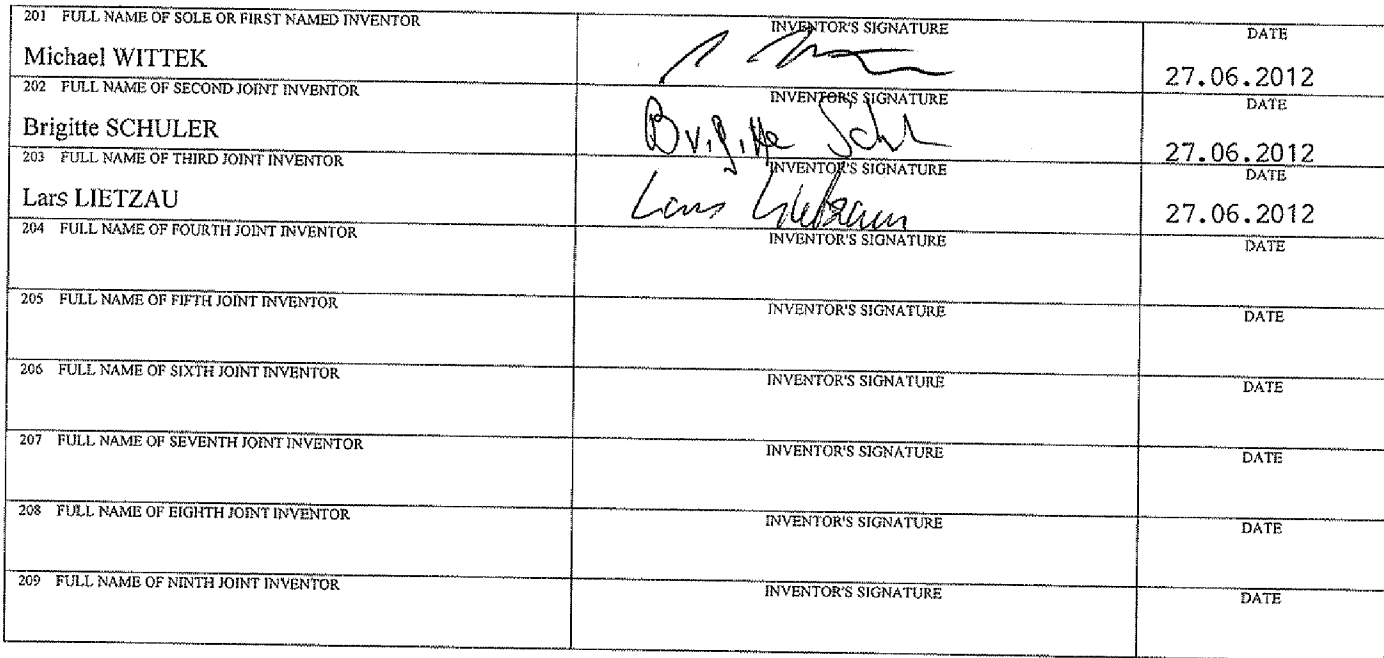 201 FULL NAME OF SOLE OR FIRST NAMED INVENTOR INVENTOR'S SIGNATURE DATE
Michael WITTEK 27.06.2012
202 FULL NAME OF SECOND JOINT INVENTOR INVENTOR'S SIGNATURE DATE
Brigitte SCHULER Brigitte 27.06.2012
203 FULL NAME OF THIRD JOINT INVENTOR INVENTOR'S SIGNATURE DATE
Lars LIETZAU Lars Lietzau 27.06.2012
204 FULL NAME OF FOURTH JOINT INVENTOR INVENTOR'S SIGNATURE DATE
205 FULL NAME OF FIFTH JOINT INVENTOR INVENTOR'S SIGNATURE DATE
206 FULL NAME OF SIXTH JOINT INVENTOR INVENTOR'S SIGNATURE DATE
207 FULL NAME OF SEVENTH JOINT INVENTOR INVENTOR'S SIGNATURE DATE
208 FULL NAME OF EIGHTH JOINT INVENTOR INVENTOR'S SIGNATURE DATE
209 FULL NAME OF NINTH JOINT INVENTOR INVENTOR'S SIGNATURE DATE